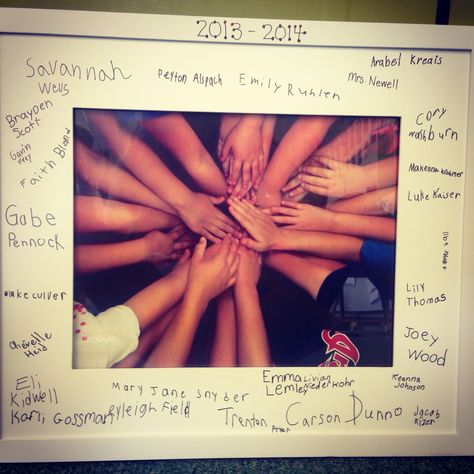 2013-2014
Savannah
Wells
Peyton Alspach
Emily Ruhlen
Mrs. Newell
Arabel Kreais
Brayden
Scott
Gavin
Fry
Faith Bland
Cory
washburn
Makenna
Luke Kaiser
Gabe
Pennock
Blake culver
Lily
Thomas
Cheveille
Heid
Joey
Wood
Eli
Kidwell
Karli Gossman
Mary Jane Snyder
Ryleigh Field
Emma
Lemley
Livian
Niederkohr
Keanna
Johnson
Trenton
Pryor
Carson Dunno
Jacob
Kizer